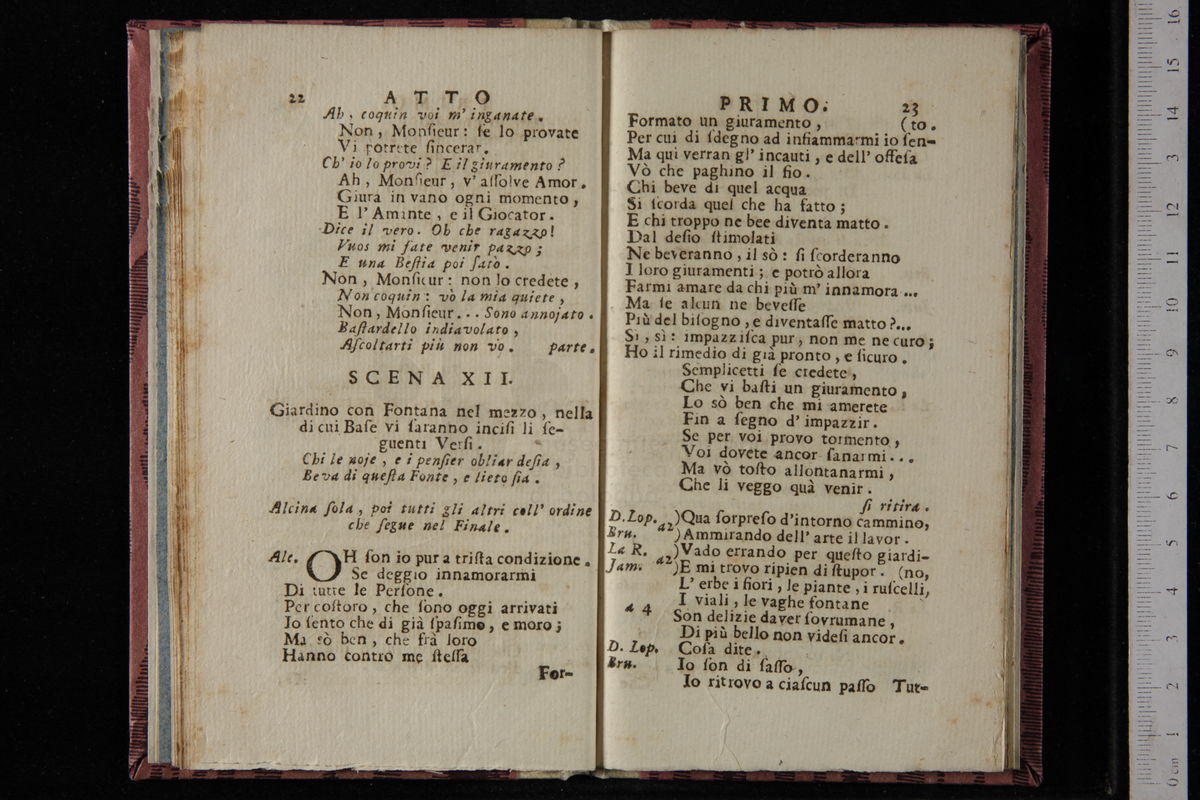 22 ATTO
Ah, coquin voi m' inganate.
Non, Monſieur: ſe lo provate
Vi potrete ſincerar.
Ch' io lo provi? E il giuramento?
Ah, Monſieur, v' aſſolve Amor.
Giura in vano ogni momento,
E l' Amante, e il Giocator.
Dice il vero. Oh che ragazzo!
Vuos mi fate venir pazzo;
E una Beſtia poi ſatò.
Non, Monſieur: non lo credete,
Non coquin: vò la mia quiete,
Non, Monſieur... Sono annojato.
Baſtardello indiavolato,
Aſcoltarti più non vò. parte.
SCENA XII.
Giardino con Fontana nel mezzo, nella
di cui Baſe vi ſaranno inciſi li ſe-
guenti Verſi.
Chi le noje, e i penſier obliar deſia,
Beva di queſta Fonte, e lieto ſia.
Alcina ſola, poi tutti gli altri coll' ordine
che ſegue nel Finale.
Alc. OH ſon io pur a triſta condizione.
Se deggio innamorarmi
Di tutte le Perſone.
Per coſtoro, che ſono oggi arrivati
Io ſento che di già ſpaſimo, e moro;
Ma sò ben, che frà loro
Hanno contro me ſteſſa
For-
PRIMO. 23
Formato un giuramento, (to.
Per cui di ſdegno ad infiammarmi io ſen-
Ma qui verran gl' incauti, e dell' offeſa
Vò che paghino il fio.
Chi beve di quel acqua
Si ſcorda quel che ha fatto;
E chi troppo ne bee diventa matto.
Dal deſio ſtimolati
Ne beveranno, il sò: ſi ſcorderanno
I loro giuramenti; e potrò allora
Farmi amare da chi più m' innamora...
Ma ſe alcun ne beveſſe
Più del biſogno, e diventaſſe matto?...
Si, sì: impazziſca pur, non me ne curo;
Ho il rimedio di già pronto, e ſicuro.
Semplicetti ſe credete,
Che vi baſti un giuramento,
Lo sò ben che mi amerete
Fin a ſegno d' impazzir.
Se per voi provo tormento,
Voi dovete ancor ſanarmi...
Ma vò toſto allontanarmi,
Che li veggo quà venir.
ſi ritira.
D. Lop. a2 )Qua ſorpreſo d'intorno cammino,
Bru. )Ammirando dell' arte il lavor.
La R. a2 )Vado errando per queſto giardi-
Jam. )E mi trovo ripien di ſtupor. (no,
L' erbe i fiori, le piante, i ruſcelli,
a 4 I viali, le vaghe fontane
Son delizie daver ſovrumane,
Di più bello non videſi ancor.
D. Lop. Coſa dite.
Bru. Io ſon di ſaſſo,
Io ritrovo a ciaſcun paſſo Tut-
16
15
14
13
12
11
10
9
8
7
6
5
4
3
2
1
0 cm